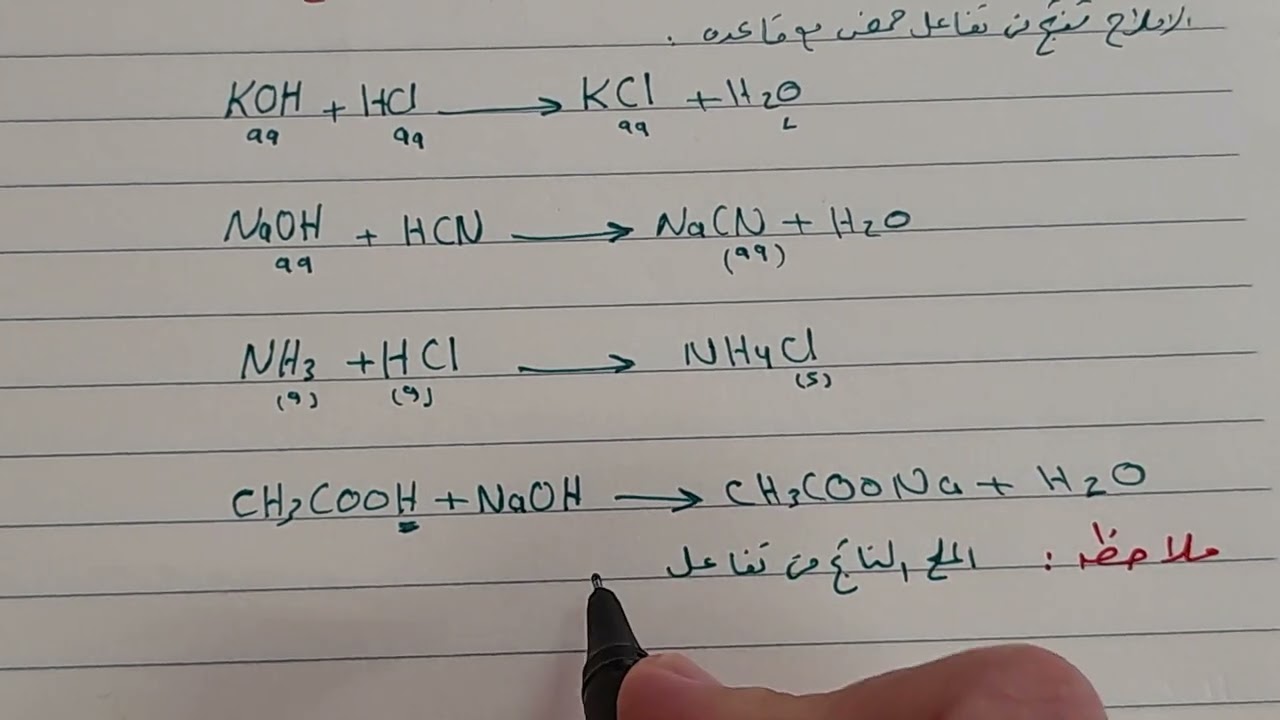 الاملاح تنتج من تفاعل حمض مع قاعده .
KOH + HCl → KCl + H2O
aq aq aq L
NaOH + HCN → NaCN + H2O
aq (aq)
NH3 + HCl → NH4Cl
(g) (g) (s)
CH3COOH + NaOH → CH3COONa + H2O
ملاحظه : الملح الناتج من تفاعل